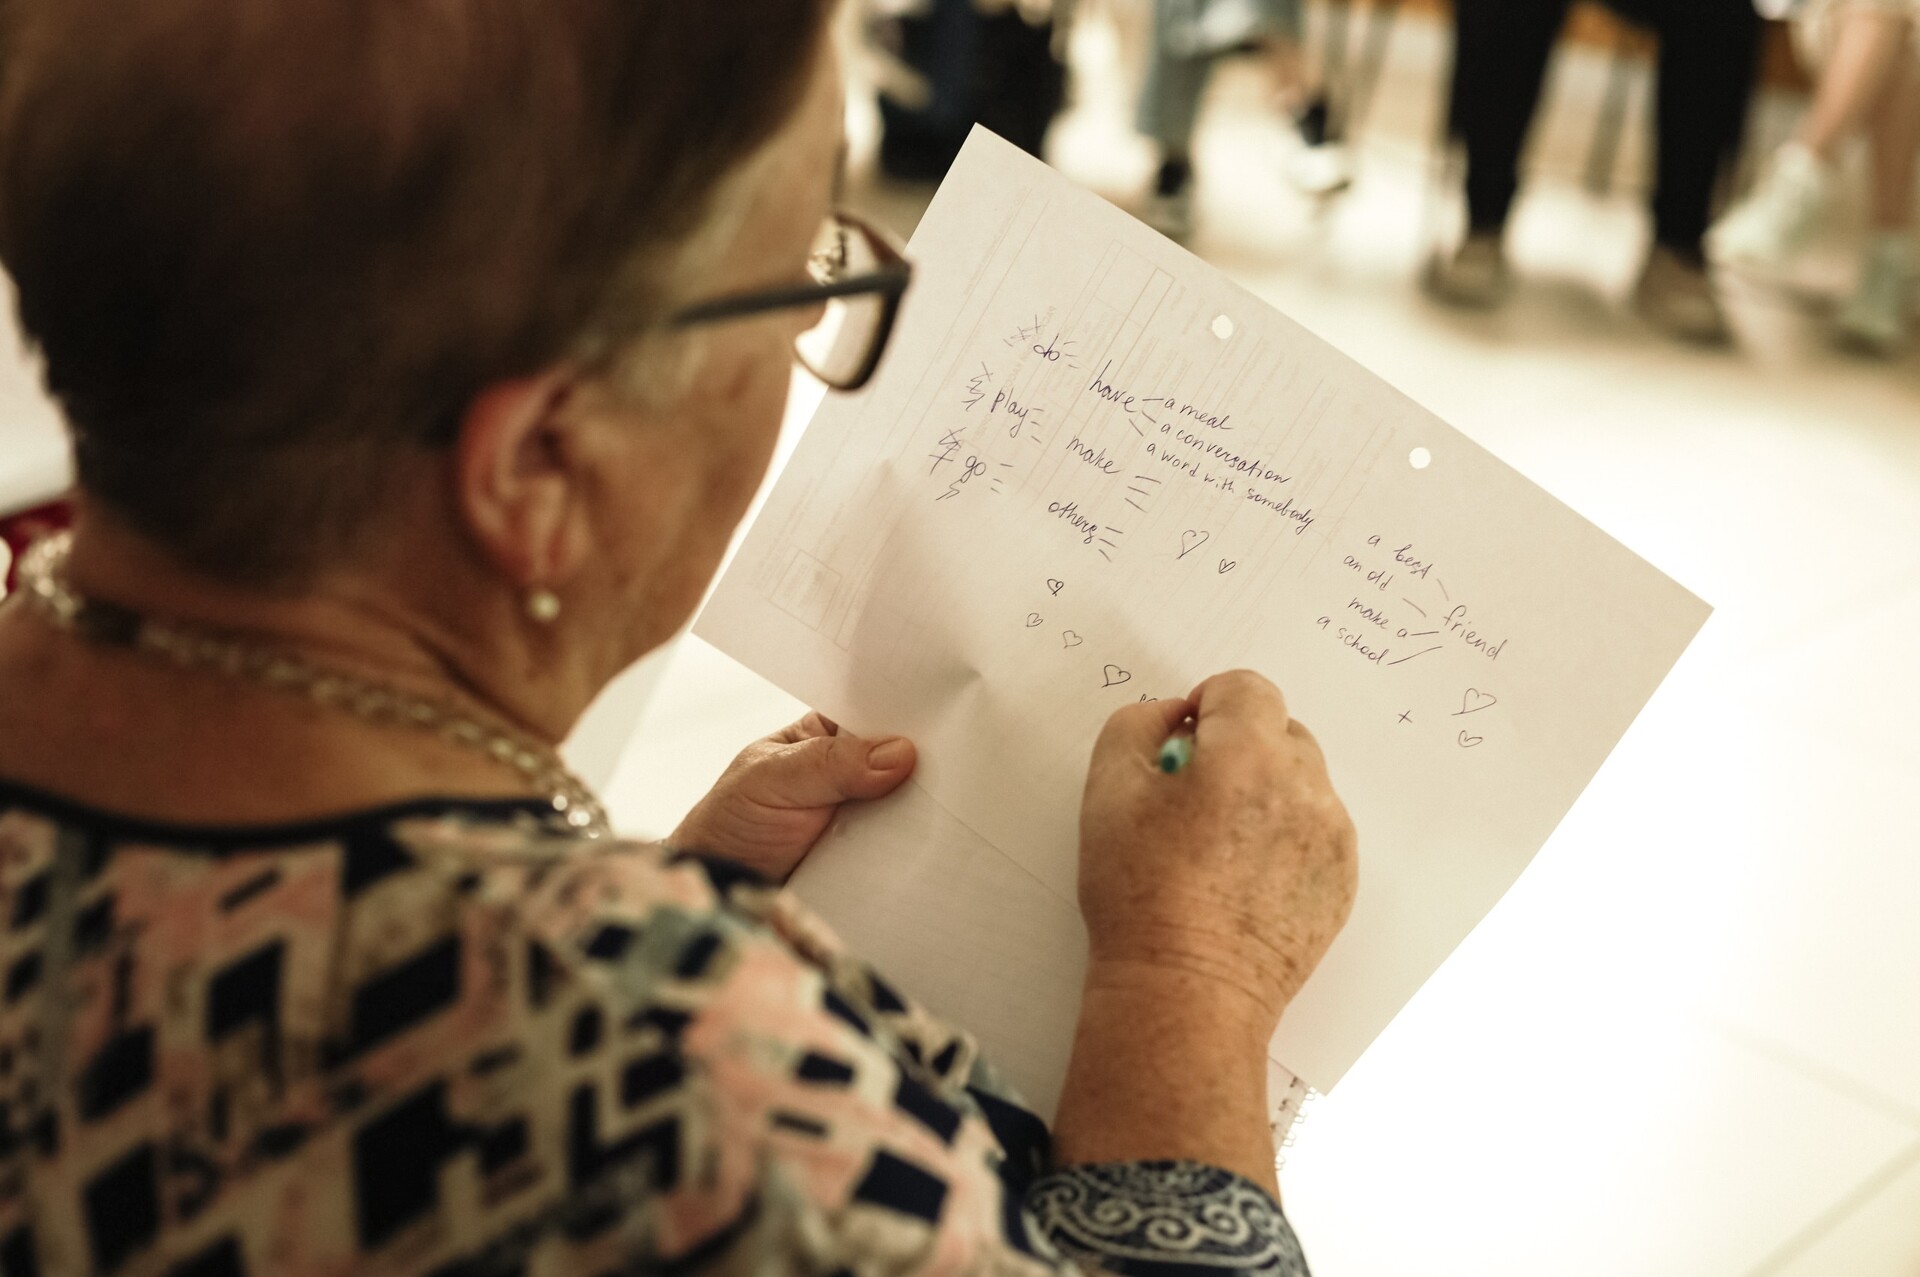 do
play
go
have
a meal
a conversation
a word with somebody
make
others
a best
an old
make a
a school
friend